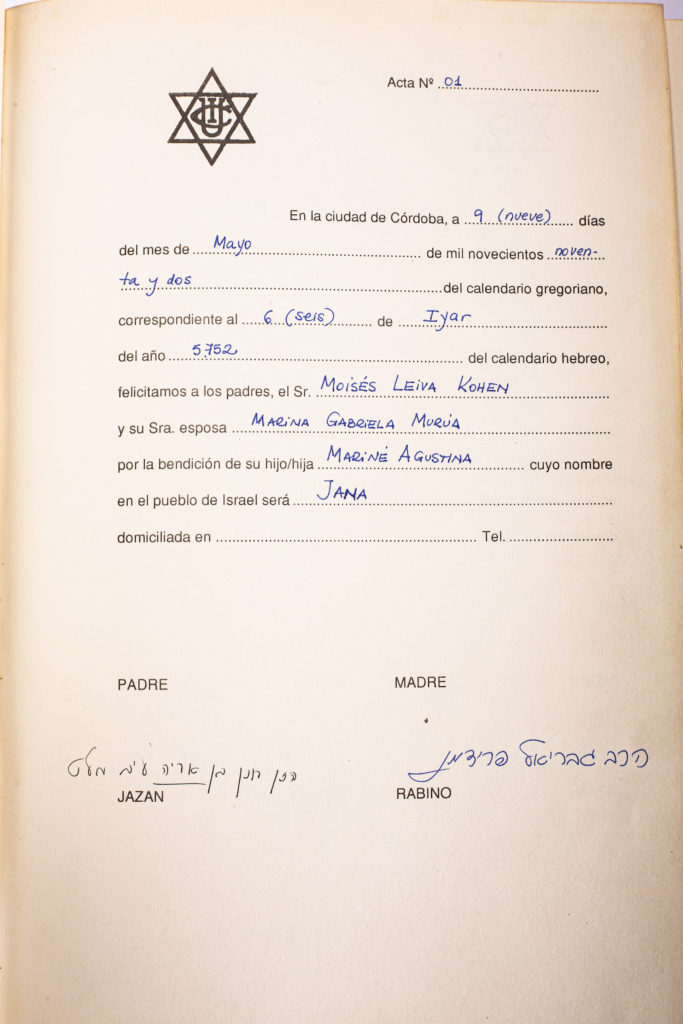 Acta Nº 01
En la ciudad de Córdoba, a 9 (nueve) días
del mes de Mayo de mil novecientos noven-
ta y dos del calendario gregoriano,
correspondiente al 6 (seis) de Iyar
del año 5752 del calendario hebreo,
felicitamos a los padres, el Sr. Moisés Leiva Kohen
y su Sra. esposa Marina Gabriela Murúa
por la bendición de su hijo/hija Mariné Agustina cuyo nombre
en el pueblo de Israel será Jana
domiciliada en Tel.
PADRE MADRE
הרב גבריאל פרידמן
חזן חנן בן אריה
JAZAN RABINO